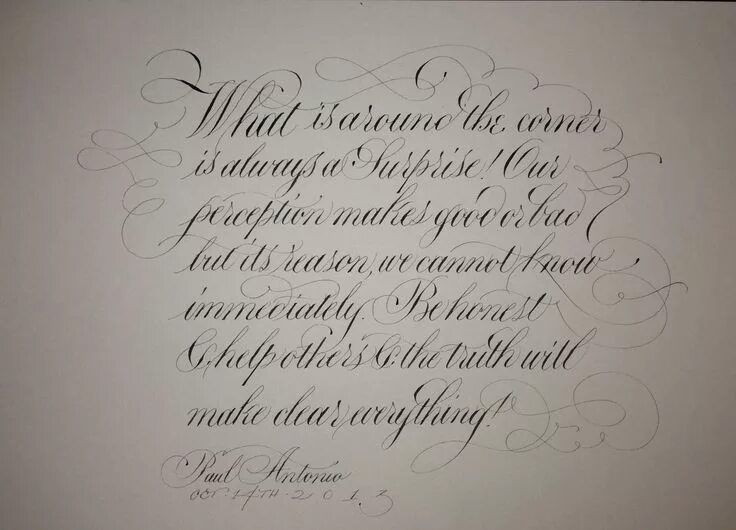 What is around the corner
is always a Surprise! Our
perception makes good or bad
but it's reason, we cannot know
immediately. Be honest
& help others & the truth will
make clear, everything!
Paul Antonio
OCT · 14TH · 2013